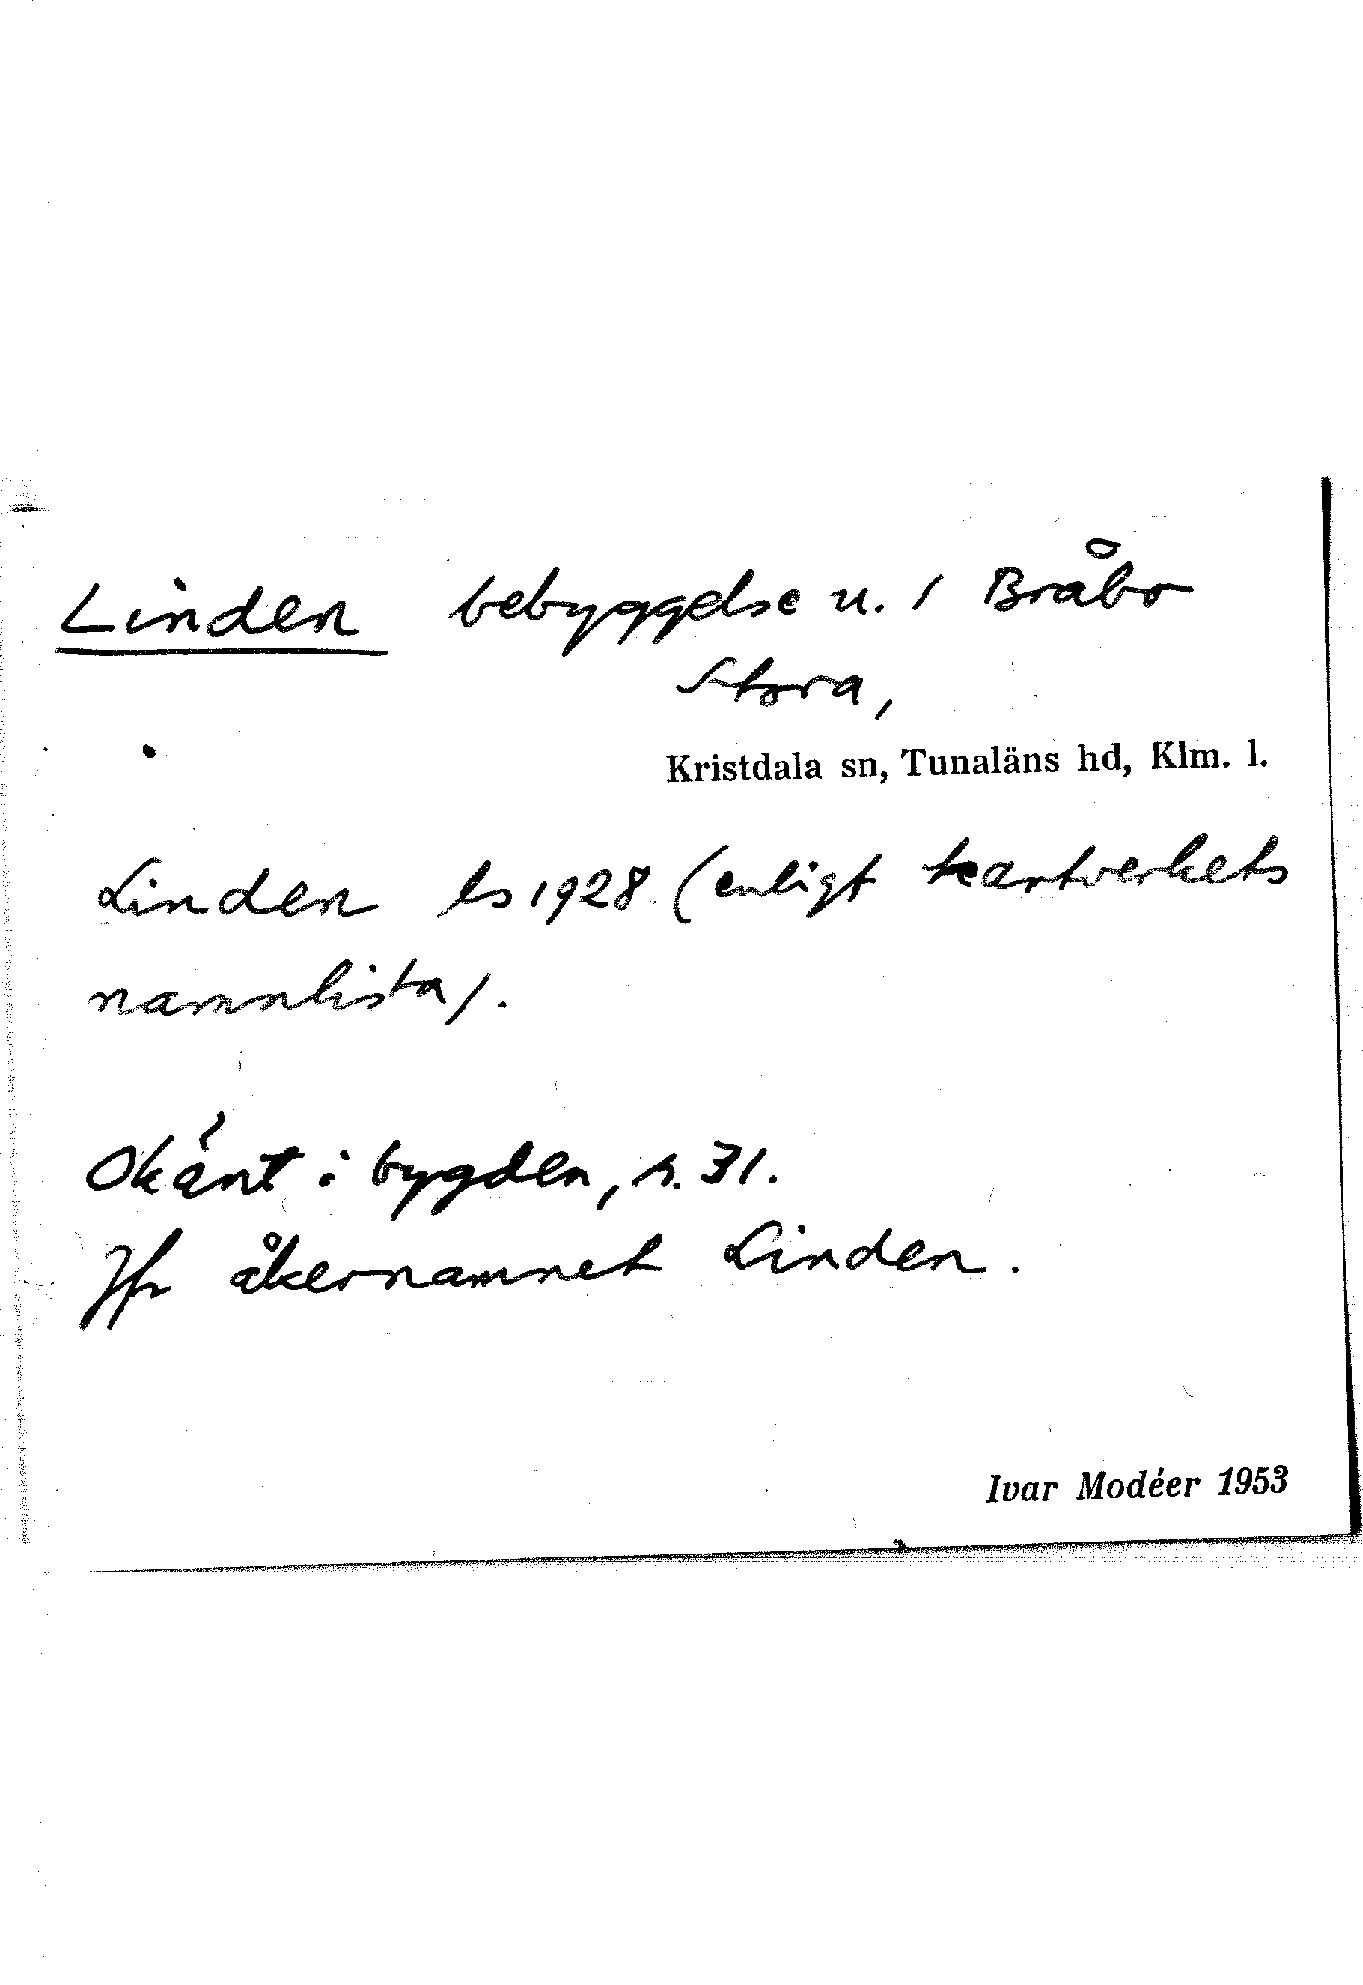 Linden bebyggelse u. 1 Bråbo
Stora,
Kristdala sn, Tunaläns hd, Klm. l.
Linden ls 1928 (enligt kartverkets
namnlista).
Okänt i bygden, s. 31.
Jfr åkernamnet Linden.
Ivar Modéer 1953